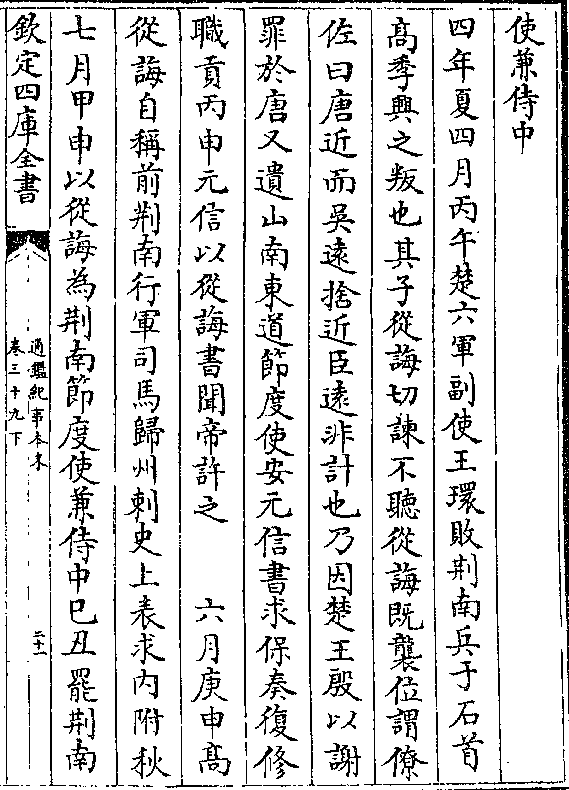 使兼侍中
四年夏四月丙午楚六軍副使王環敗荆南兵于石首
髙季興之叛也其子從誨切諫不聽從誨既襲位謂僚
佐曰唐近而吳逺捨近臣逺非計也乃因楚王殷以謝
罪於唐又遺山南東道節度使安元信書求保奏復修
職貢丙申元信以從誨書聞帝許之　　六月庚申髙
從誨自稱前荆南行軍司馬歸州刺史上表求内附秋
七月甲申以從誨為荆南節度使兼侍中已丑罷荆南
欽定四庫全書
通鑑紀事本末
卷三十九下
二十一